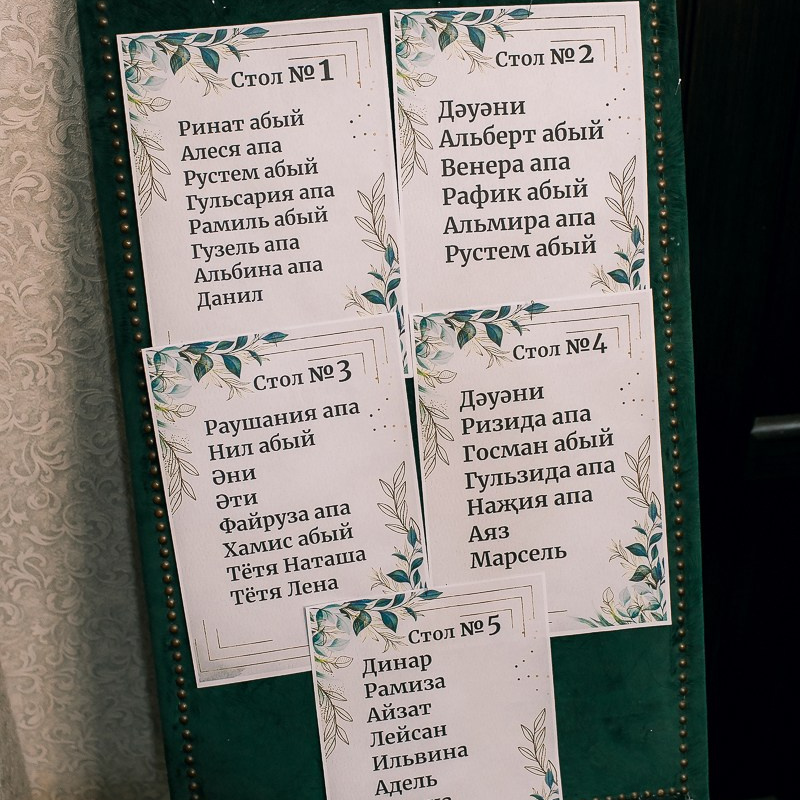 Стол №1
Ринат абый
Алеся апа
Рустем абый
Гульсария апа
Рамиль абый
Гузель апа
Альбина апа
Данил
Стол №2
Дәуәни
Альберт абый
Венера апа
Рафик абый
Альмира апа
Рустем абый
Стол №3
Раушания апа
Нил абый
Әни
Әти
Файруза апа
Хамис абый
Тётя Наташа
Тётя Лена
Стол №4
Дәуәни
Ризида апа
Госман абый
Гульзида апа
Наҗия апа
Аяз
Марсель
Стол №5
Динар
Рамиза
Айзат
Лейсан
Ильвина
Адель